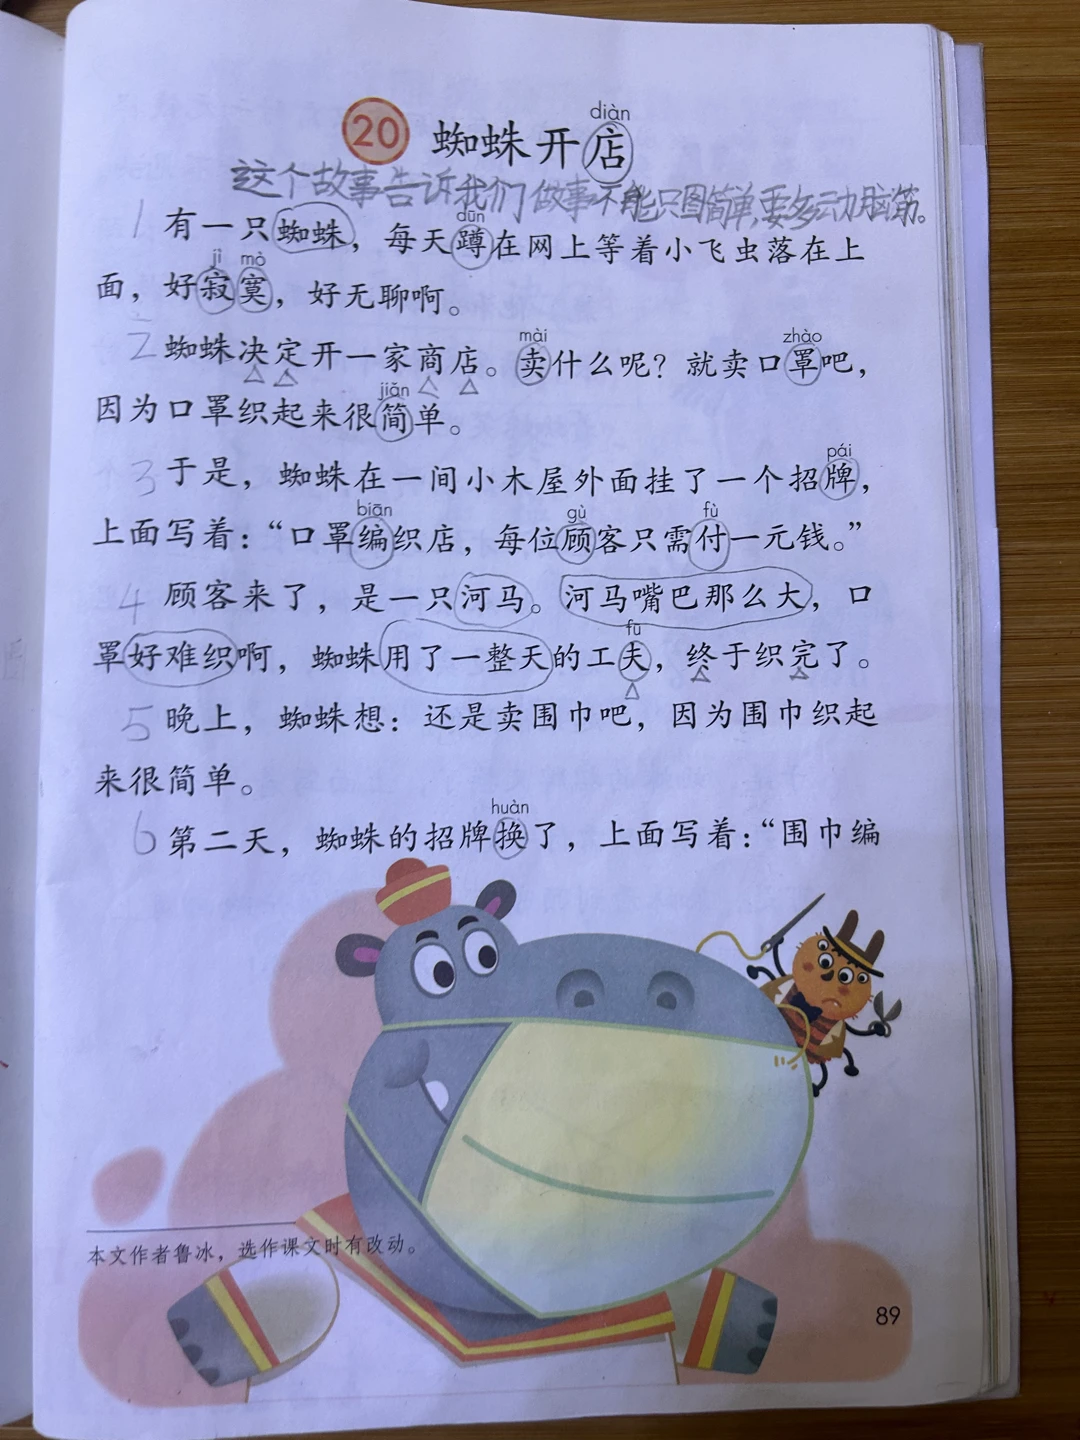 diàn
20 蜘蛛开店
这个故事告诉我们做事不能只图简单,要多动脑筋。
dūn
1 有一只蜘蛛，每天蹲在网上等着小飞虫落在上
jì mò
面，好寂寞，好无聊啊。
mài zhào
2 蜘蛛决定开一家商店。卖什么呢？就卖口罩吧，
jiǎn
因为口罩织起来很简单。
pái
3 于是，蜘蛛在一间小木屋外面挂了一个招牌，
biān gù fù
上面写着：“口罩编织店，每位顾客只需付一元钱。”
4 顾客来了，是一只河马。河马嘴巴那么大，口
fu
罩好难织啊，蜘蛛用了一整天的工夫，终于织完了。
5 晚上，蜘蛛想：还是卖围巾吧，因为围巾织起
来很简单。
huàn
6 第二天，蜘蛛的招牌换了，上面写着：“围巾编
本文作者鲁冰，选作课文时有改动。
89